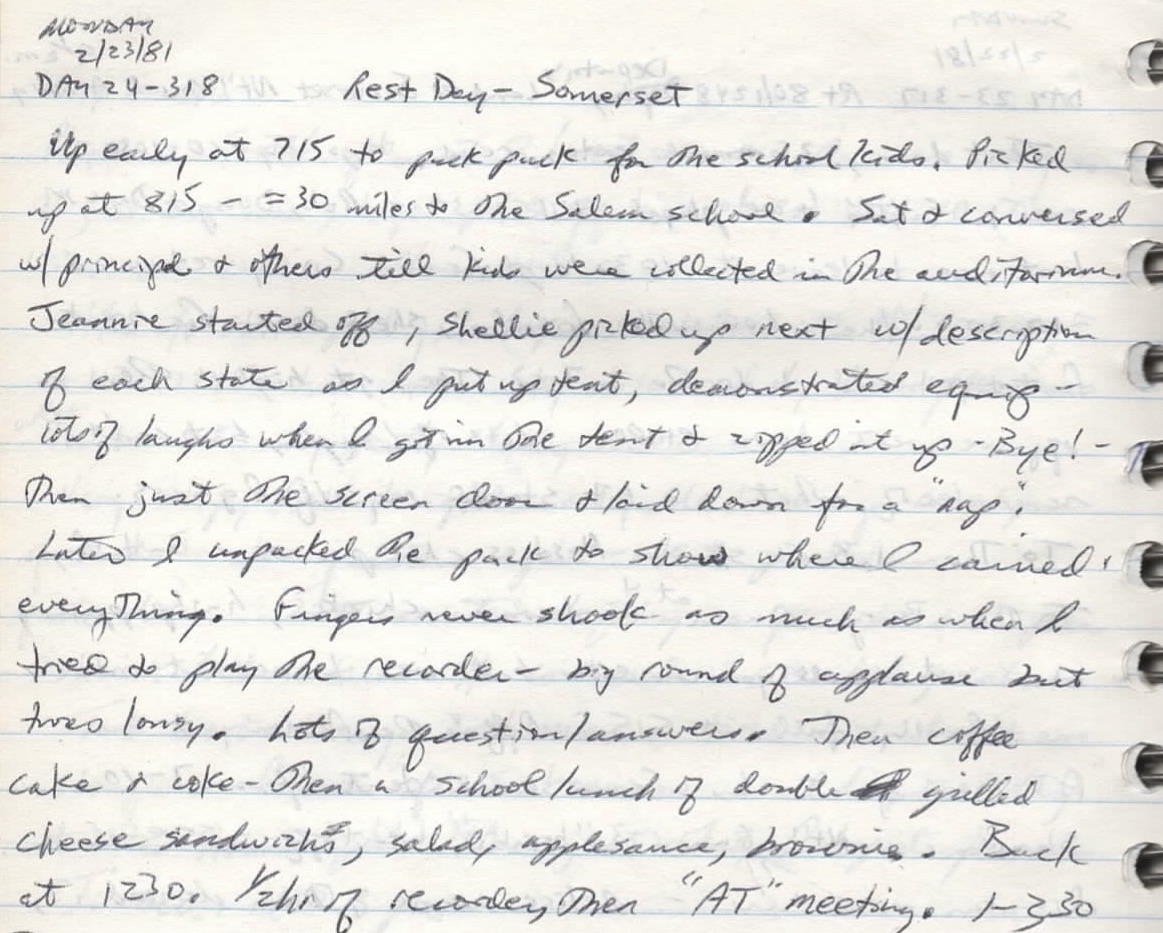 MONDAY
2/23/81
DAY 24-318 Rest Day - Somerset
Up early at 715 to pack pack for the school kids. Picked
up at 815 - ≈30 miles to the Salem school. Sat & conversed
w/ principal & others till kids were collected in the auditorium.
Jeannie started off, Shellie picked up next w/ description
of each state as I put up tent, demonstrated equip -
lots of laughs when I got in the tent & zipped it up - Bye! -
Then just the screen door & laid down for a "nap".
Later I unpacked the pack to show where I carried
everything. Fingers never shook as much as when I
tried to play the recorder - big round of applause but
twas lousy. Lots of question/answers. Then coffee
cake & coke - Then a school lunch of double grilled
cheese sandwichs, salad, applesauce, brownie. Back
at 1230. 1/2 hr of recorder, Then "AT" meeting. 1-230